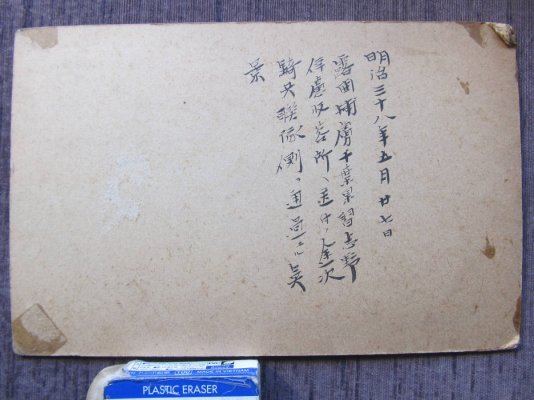 明治三十八年五月廿七日
露国捕虜千葉県習志野
俘虜収容所ヘ送中ノ途次
騎兵聯隊側ヲ通過スル
景
MADE IN VIETNAM
PLASTIC ERASER